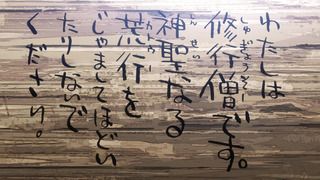 わたしは
修行僧です。
神聖なる
荒行を
じゃましてほどい
たりしないで
ください。